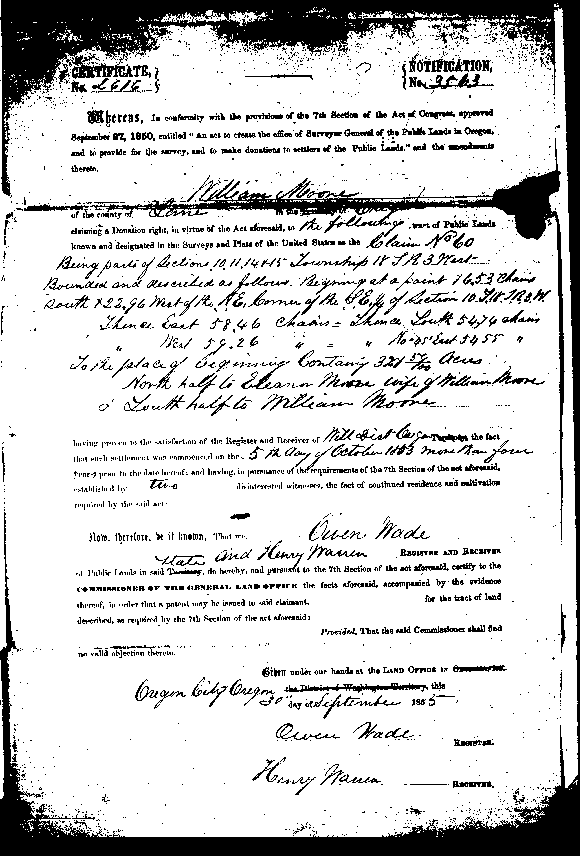 CERTIFICATE, NOTIFICATION,
No. 2616 No. 3563
Whereas, In conformity with the provisions of the 7th Section of the Act of Congress, approved
September 27, 1850, entitled "An act to create the office of Surveyor General of the Public Lands in Oregon,
and to provide for the survey, and to make donations to settlers of the Public Lands," and the amendments
thereto.
William Moore
of the county of Lane in the
claiming a Donation right, in virtue of the Act aforesaid, to the following part of Public Lands
known and designated in the Surveys and Plats of the United States as the Claim No 60
Being parts of Sections 10, 11, 14 & 15 Township 18 S. R 3 West
Bounded and described as follows. Begining at a point 16.53 Chains
South & 22.96 West of the N.E. Corner of the S.E. ¼ of Section 10 T. 18 S. R 3 W
Thence East 58.46 chains = Thence South 54.74 chains
" West 59.26 " " = " No 05' East 54.55 "
To the place of beginning Containg 321 57/100 Acres
North half to Eleanor Moore wife of William Moore
& South half to William Moore
having proven to the satisfaction of the Register and Receiver of Will Dist Oregon Territory, the fact
that such settlement was commenced on the 5th day of October 1853 more than four
years prior to the date hereof; and having, in pursuance of the requirements of the 7th Section of the act aforesaid,
established by two disinterested witnesses, the fact of continued residence and cultivation
required by the said act:
Now, therefore, be it known, That we, Owen Wade
State and Henry Warren REGISTER AND RECEIVER
of Public Lands in said Territory, do hereby, and pursuant to the 7th Section of the act aforesaid, certify to the
COMMISSIONER OF THE GENERAL LAND OFFICE the facts aforesaid, accompanied by the evidence
thereof, in order that a patent may be issued to said claimant, for the tract of land
described, as required by the 7th Section of the act aforesaid:
Provided, That the said Commissioner shall find
no valid objection thereto.
Given under our hands at the LAND OFFICE in
Oregon City Oregon the District of Washington Territory, this
30 day of September 1865
Owen Wade
REGISTER.
Henry Warren RECEIVER.